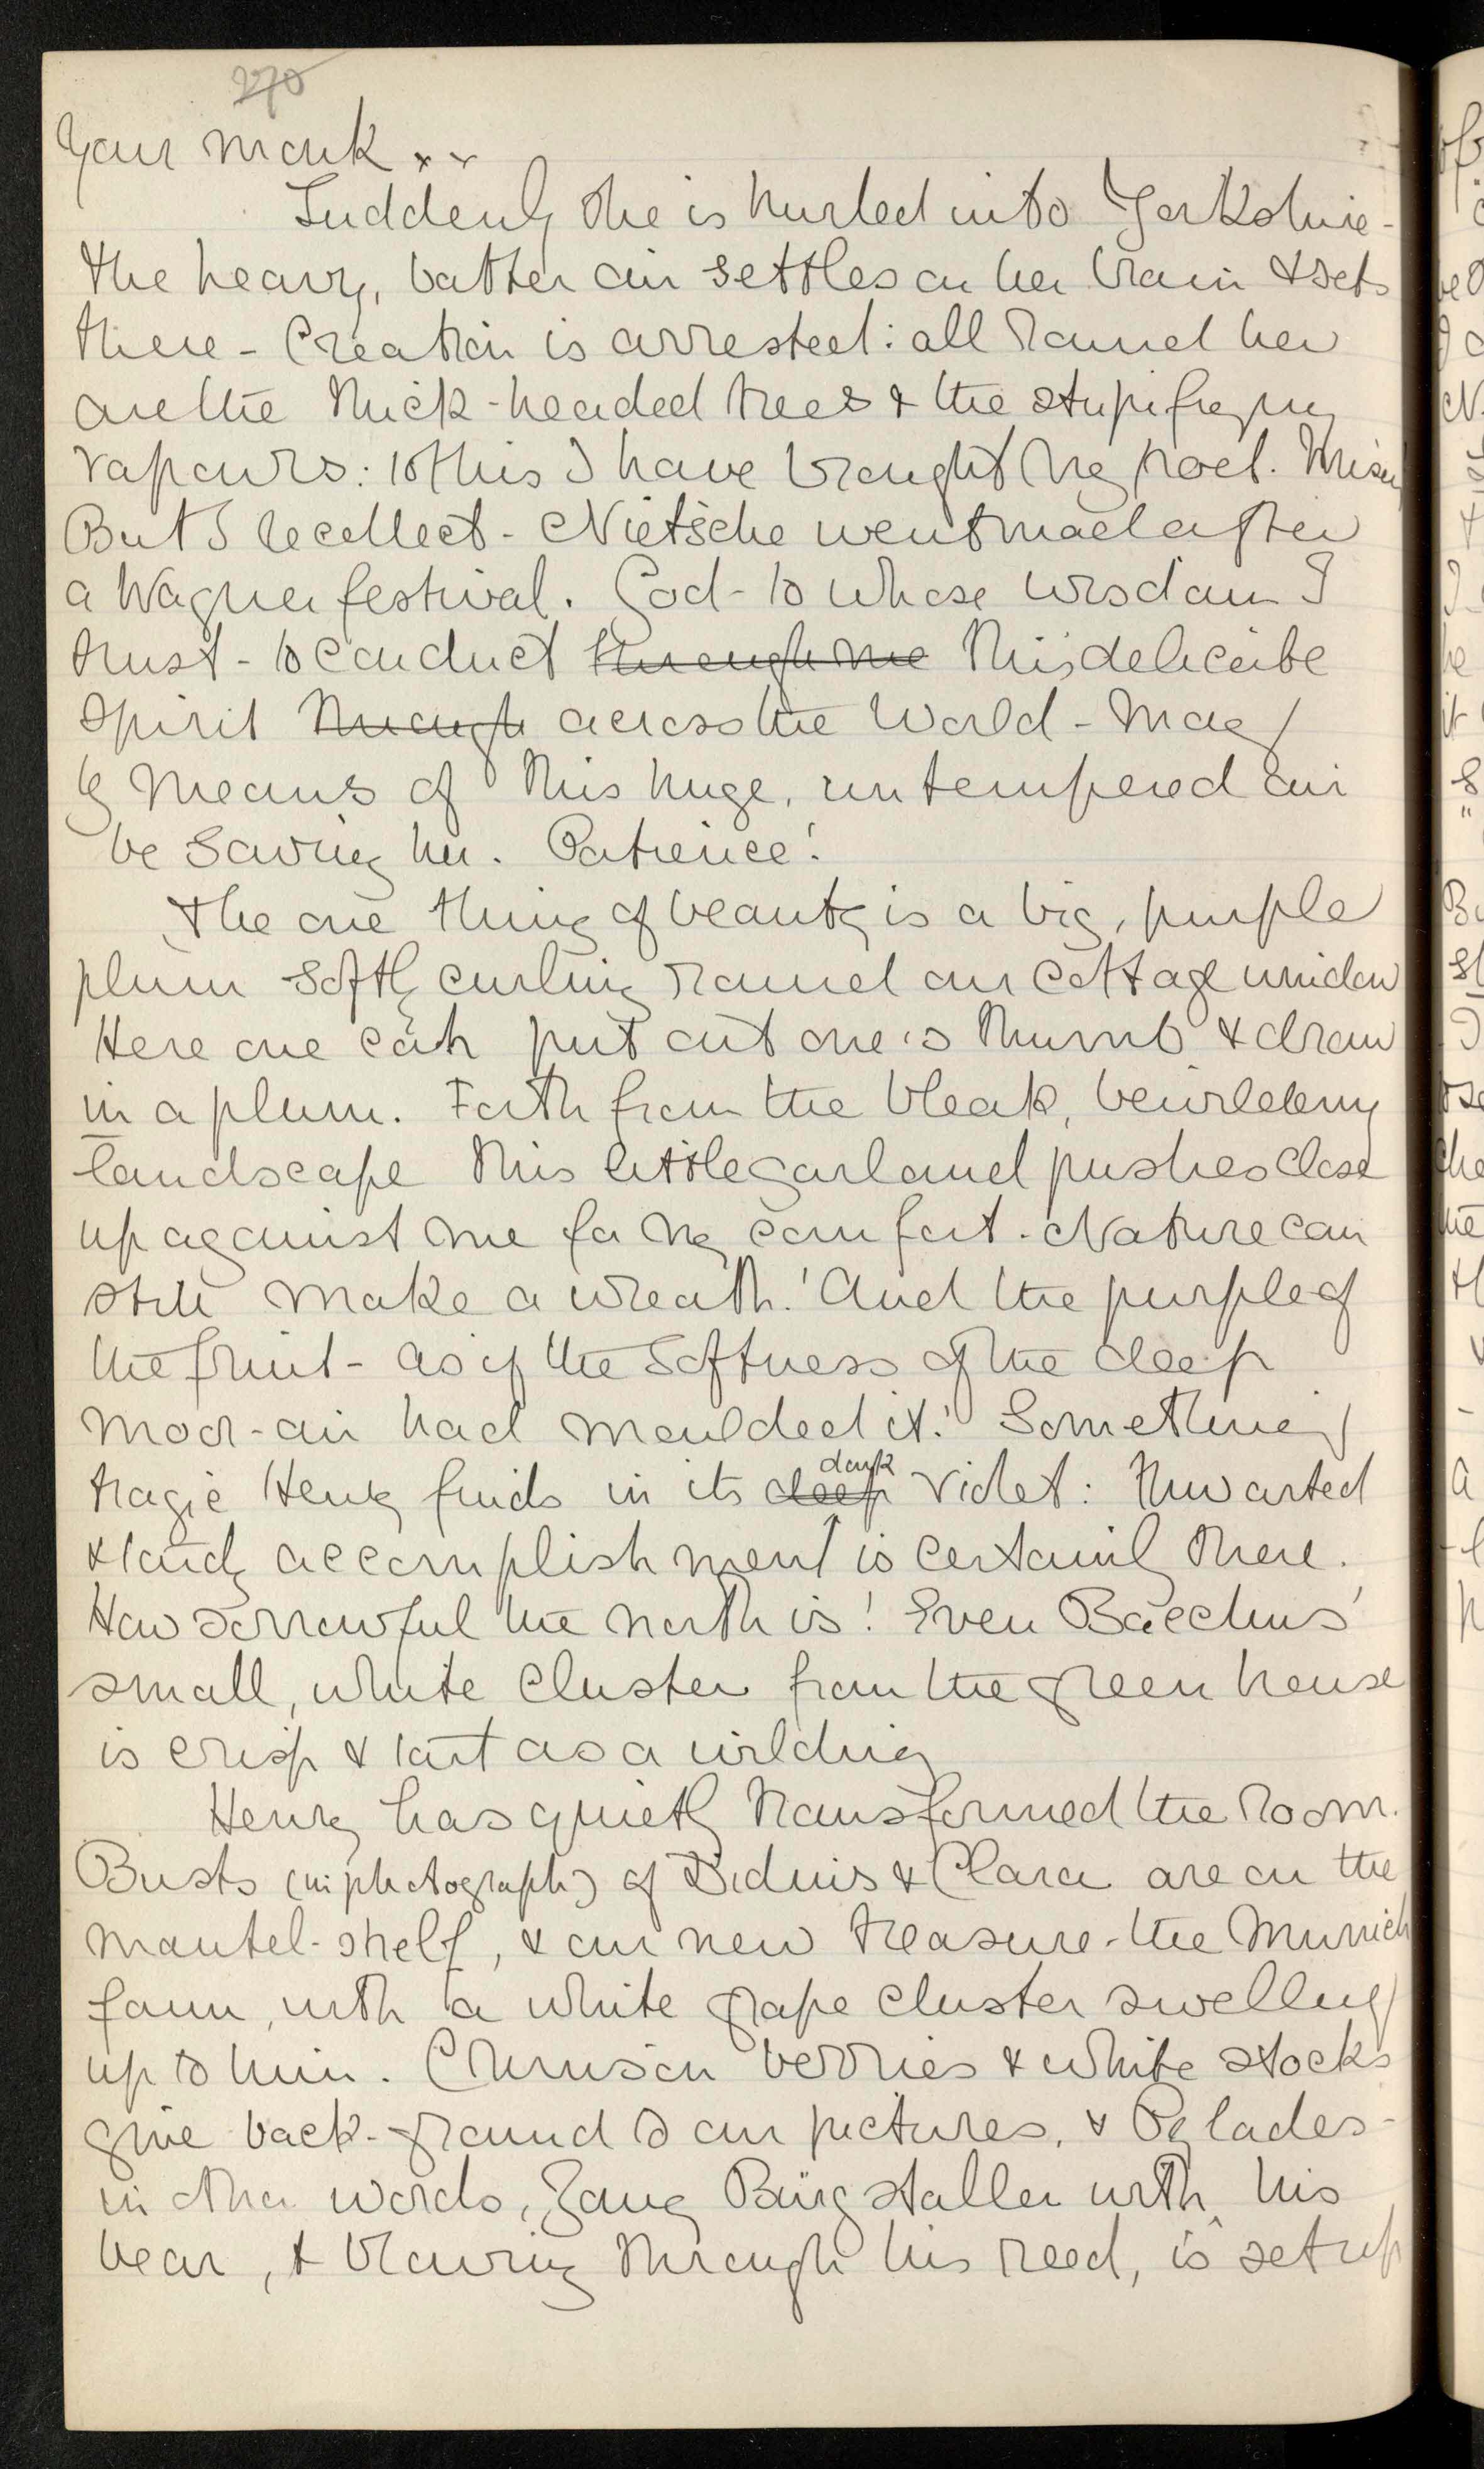 270
Your mark . .
Suddenly she is hurled into Yorkshire -
the heavy, batter air settles on her brain & sets
there - Creation is arrested: all round her
are the thick-headed trees & the stupifying
vapours: to this I have brought my poet.
But I recollect - Nietsche went mad after
a Wagner festival. God - to whose wisdom I
trust - to conduct through me this delicate
spirit through across the world - may
by means of this huge, untempered air
be saving her. Patience!
The one thing of beauty is a big, purple
plum softly curling round our cottage window
Here one can put out one's thumb & draw
in a plum. Forth from the bleak, bewildering
landscape this little garland pushes close
up against me for my comfort. Nature can
still make a wreath! And the purple of
the fruit - as if the softness of the deep
moor-air had moulded it! Something
dark
tragic Henry finds in its deep violet: thwarted
& tardy accomplishment is certainly there.
How sorrowful the north is! Even Bacchus'
small, white cluster from the green house
is crisp & tart as a wilding
Henry has quietly transformed the room.
Busts (in photograph) of & Clara are on the
mantel-shelf, & our new treasure - the Munich
faun, with a white grape cluster swelling
up to him. Crimson berries & white stocks
give back-ground to our pictures, & Pylades -
in other words, Bürgstaller with his
bear, & blowing through his reed, is set up